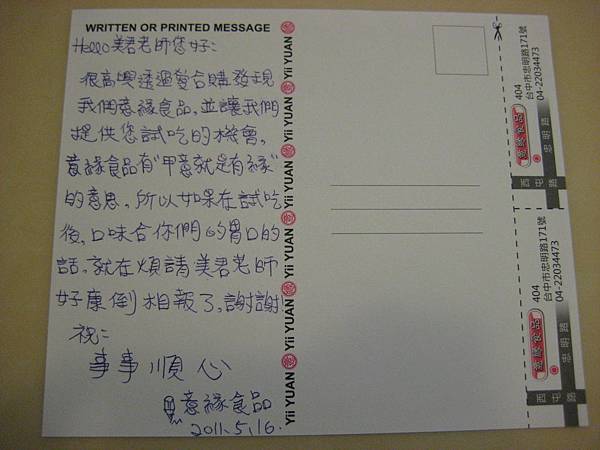 WRITTEN OR PRINTED MESSAGE
Hello 美君老師您好:
很高興透過愛合購發現
我們意緣食品,並讓我們
提供您試吃的機會。
意緣食品有"甲意就是有緣"
的意思。所以如果在試吃
後,口味合你們的胃口的
話,就在煩請美君老師
好康倒相報了,謝謝
祝:
事事順心
意緣食品
2011.5.16.
Yii YUAN
Yii YUAN
Yii YUAN
Yii YUAN
Yii YUAN
Yii YUAN
404
台中市忠明路171號
04-22034473
意緣食品
忠明路
西屯路
404
台中市忠明路171號
04-22034473
意緣食品
忠明路
西屯路